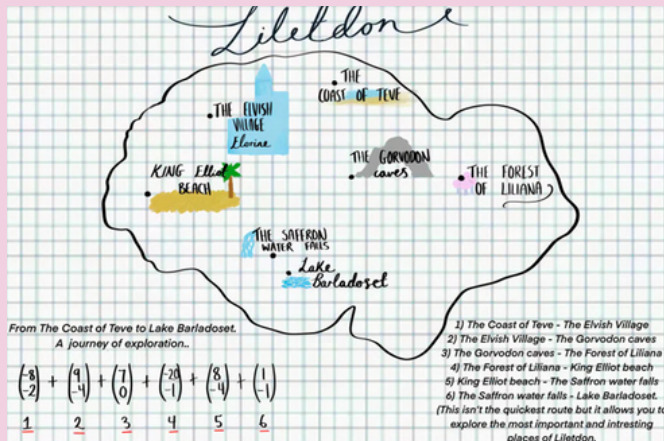 Liletdon
THE
COAST OF TEVE
THE ELVISH
VILLAGE
Elorine
THE GORVODON
caves
KING Elliot
BEACH
THE FOREST
OF LILIANA
THE SAFFRON
WATER FALLS
Lake
Barladoset
From The Coast of Teve to Lake Barladoset.
A journey of exploration..
(-8 -2) + (9 -4) + (7 0) + (-20 -1) + (8 -4) + (1 -1)
1 2 3 4 5 6
1) The Coast of Teve - The Elvish Village
2) The Elvish Village - The Gorvodon caves
3) The Gorvodon caves - The Forest of Liliana
4) The Forest of Liliana - King Elliot beach
5) King Elliot beach - The Saffron water falls
6) The Saffron water falls - Lake Barladoset.
(This isn't the quickest route but it allows you to
explore the most important and intresting
places of Liletdon.